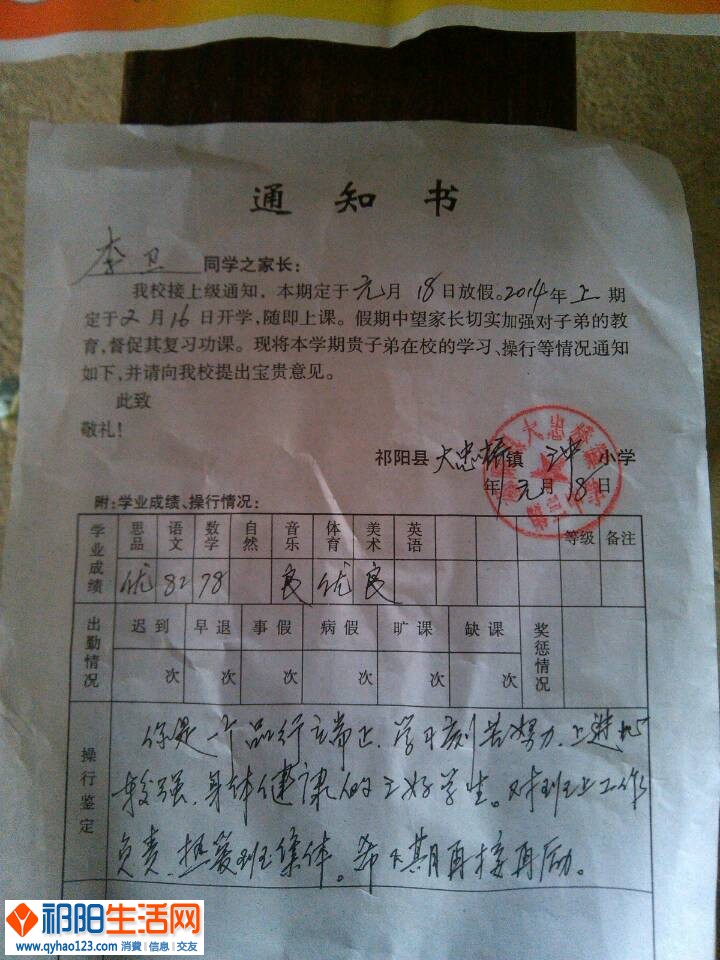 通知书
李卫 同学之家长：
我校接上级通知，本期定于元月18日放假。2014年上期
定于2月16日开学，随即上课。假期中望家长切实加强对子弟的教
育，督促其复习功课。现将本学期贵子弟在校的学习、操行等情况通知
如下，并请向我校提出宝贵意见。
此致
敬礼！
祁阳县大忠桥镇 小学
年元月18日
附：学业成绩、操行情况：
学业成绩 思品 语文 数学 自然 音乐 体育 美术 英语 等级 备注
优 82 78 良 优 良
出勤情况 迟到 早退 事假 病假 旷课 缺课 奖惩情况
次 次 次 次 次 次
操行鉴定
你是一个品行端正、学习刻苦努力、上进心
较强、身体健康的三好学生。对班上工作
负责、热爱班集体。希下期再接再励。
祁阳生活网
www.qyhao123.com 消费|信息|交友